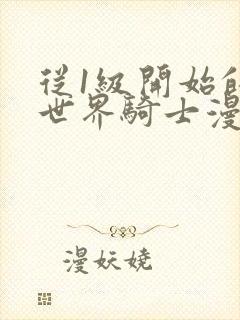 從1級開始
世界騎士漫
漫妖娆